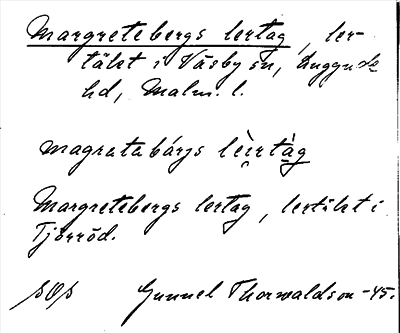 Margretebergs lertag, ler-
täkt i Väsby sn, Luggude
hd, Malm. l.
magratabárjs lèirtàg
Margretebergs lertag, lertäkt i
Tjörröd.
Gunnel Thorwaldson -45.